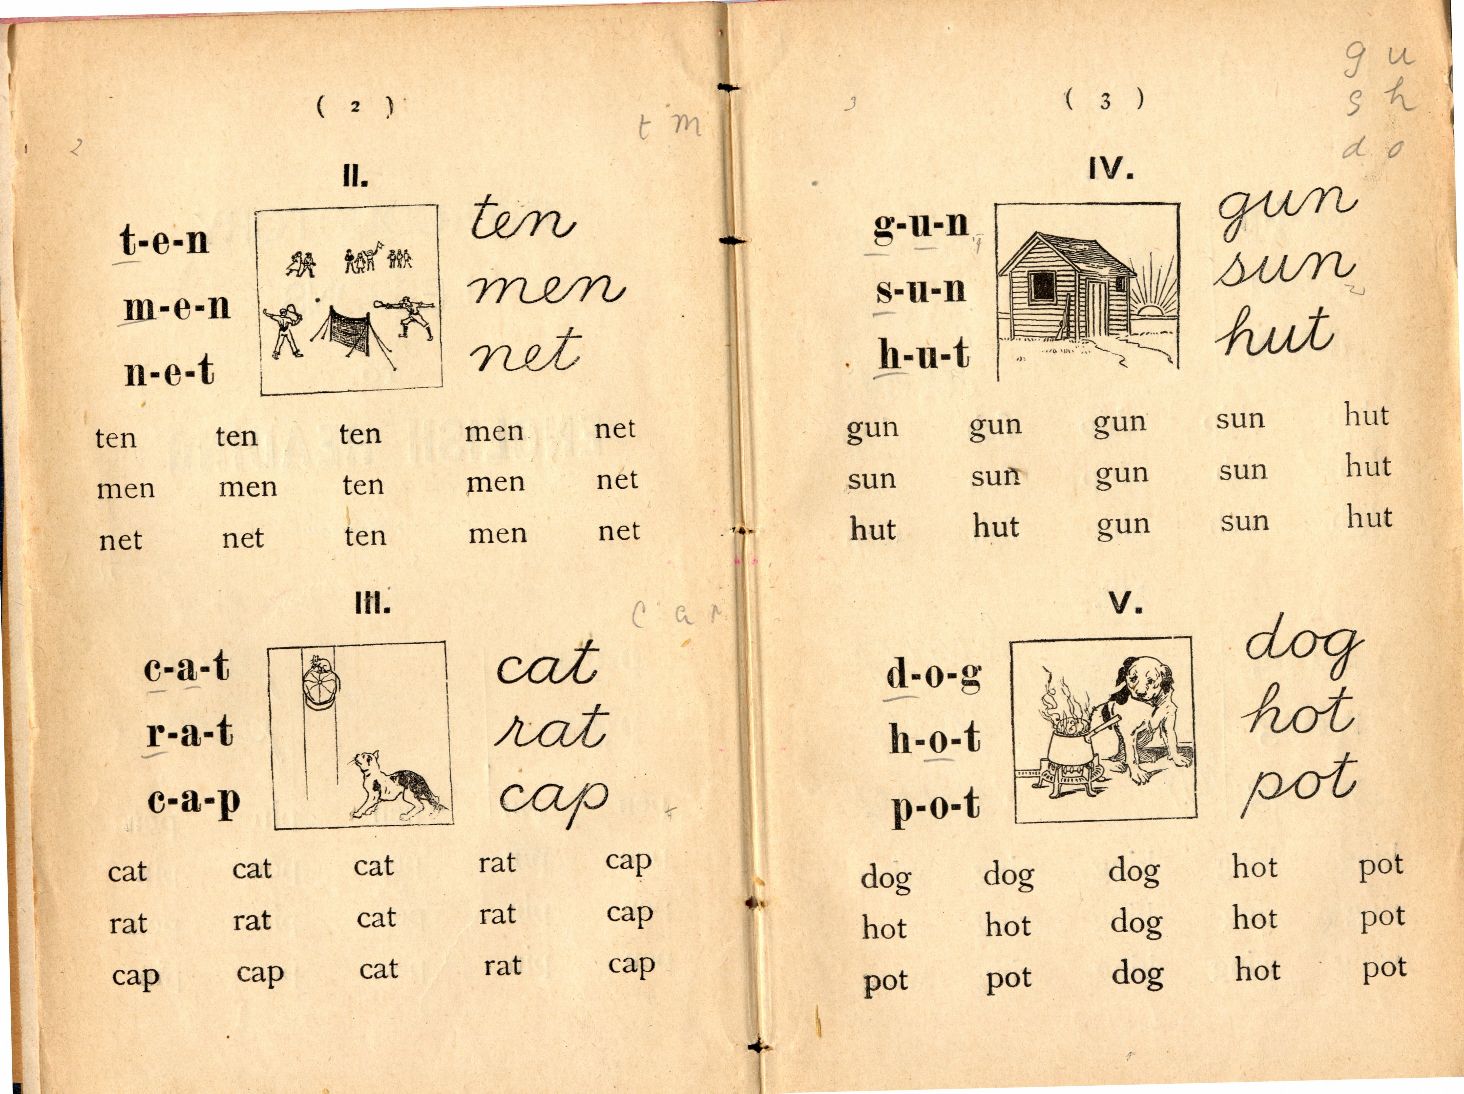 ( 2 )
2
t m
II.
t-e-n
m-e-n
n-e-t
ten
men
net
ten ten ten men net
men men ten men net
net net ten men net
III.
c a r
c-a-t
r-a-t
c-a-p
cat
rat
cap
cat cat cat rat cap
rat rat cat rat cap
cap cap cat rat cap
3
( 3 )
g u
s h
d o
IV.
g-u-n
s-u-n
h-u-t
gun
sun
hut
gun gun gun sun hut
sun sun gun sun hut
hut hut gun sun hut
V.
d-o-g
h-o-t
p-o-t
dog
hot
pot
dog dog dog hot pot
hot hot dog hot pot
pot pot dog hot pot